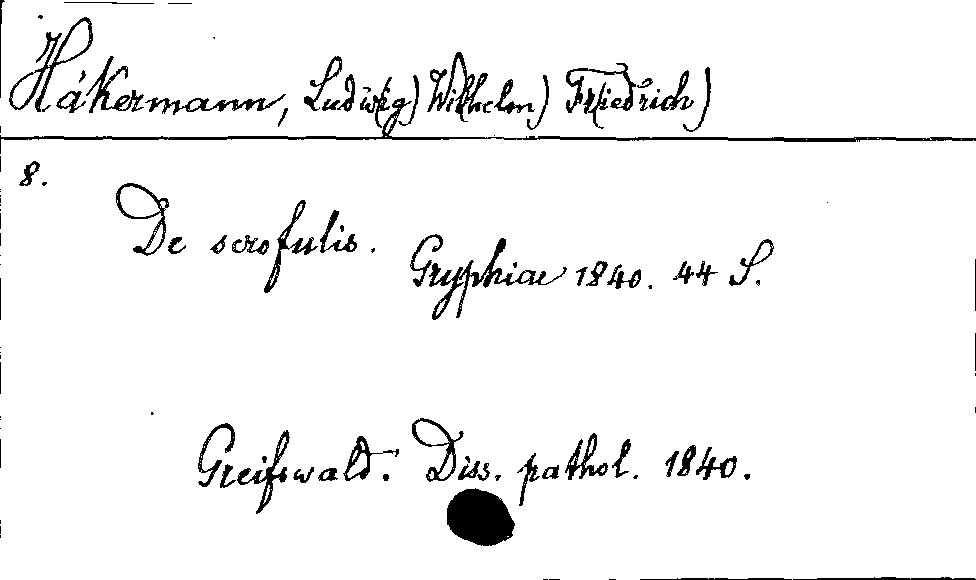 Häkermann, Lud(wig) W(ilhelm) Fr(iedrich)
8.
De scrofulis. Gryphiae 1840. 44 S.
Greifswald. Diss. pathol. 1840.